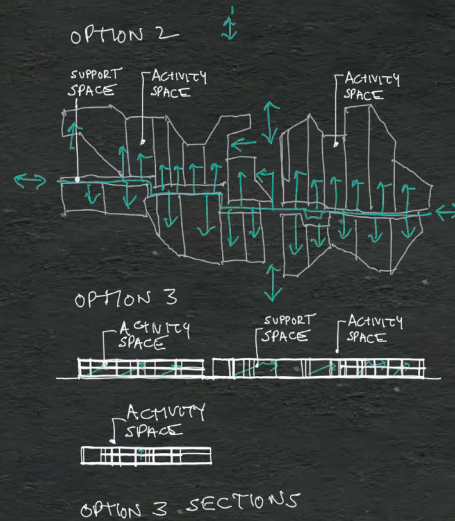 OPTION 2
SUPPORT
SPACE
ACTIVITY
SPACE
ACTIVITY
SPACE
OPTION 3
ACTIVITY
SPACE
SUPPORT
SPACE
ACTIVITY
SPACE
ACTIVITY
SPACE
OPTION 3 SECTIONS